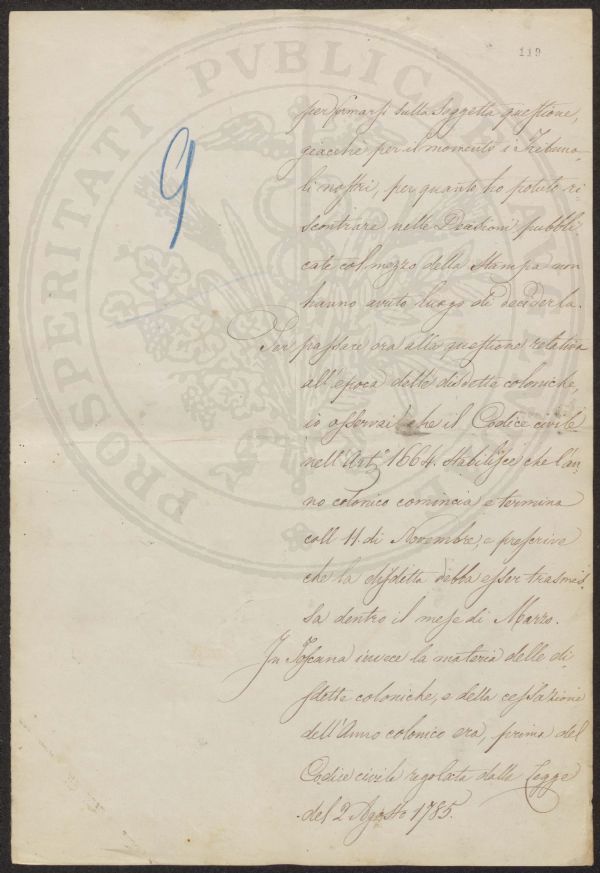 119
PROSPERITATI PVBLICAE
9
per formarsi sulla soggetta questione,
giacchè per il momento i Tribuna-
li nostri, per quanto ho potuto ri-
scontrare nelle Decisioni pubbli-
cate col mezzo della Stampa non
hanno avuto luogo di deciderla.
Per passare ora alla questione relativa
all'epoca delle disdette coloniche,
io osservai che il Codice civile
nell'Art.° 1664. stabilisce che l'an-
no colonico comincia e termina
coll 11. di Novembre, e prescrive
che la disdetta debba esser trasmes-
sa dentro il mese di Marzo.
In Toscana invece la materia delle di-
sdette coloniche, e della cessazione
dell'Anno colonico era, prima del
Codice civile regolata dalla Legge
del 2 Agosto 1785.